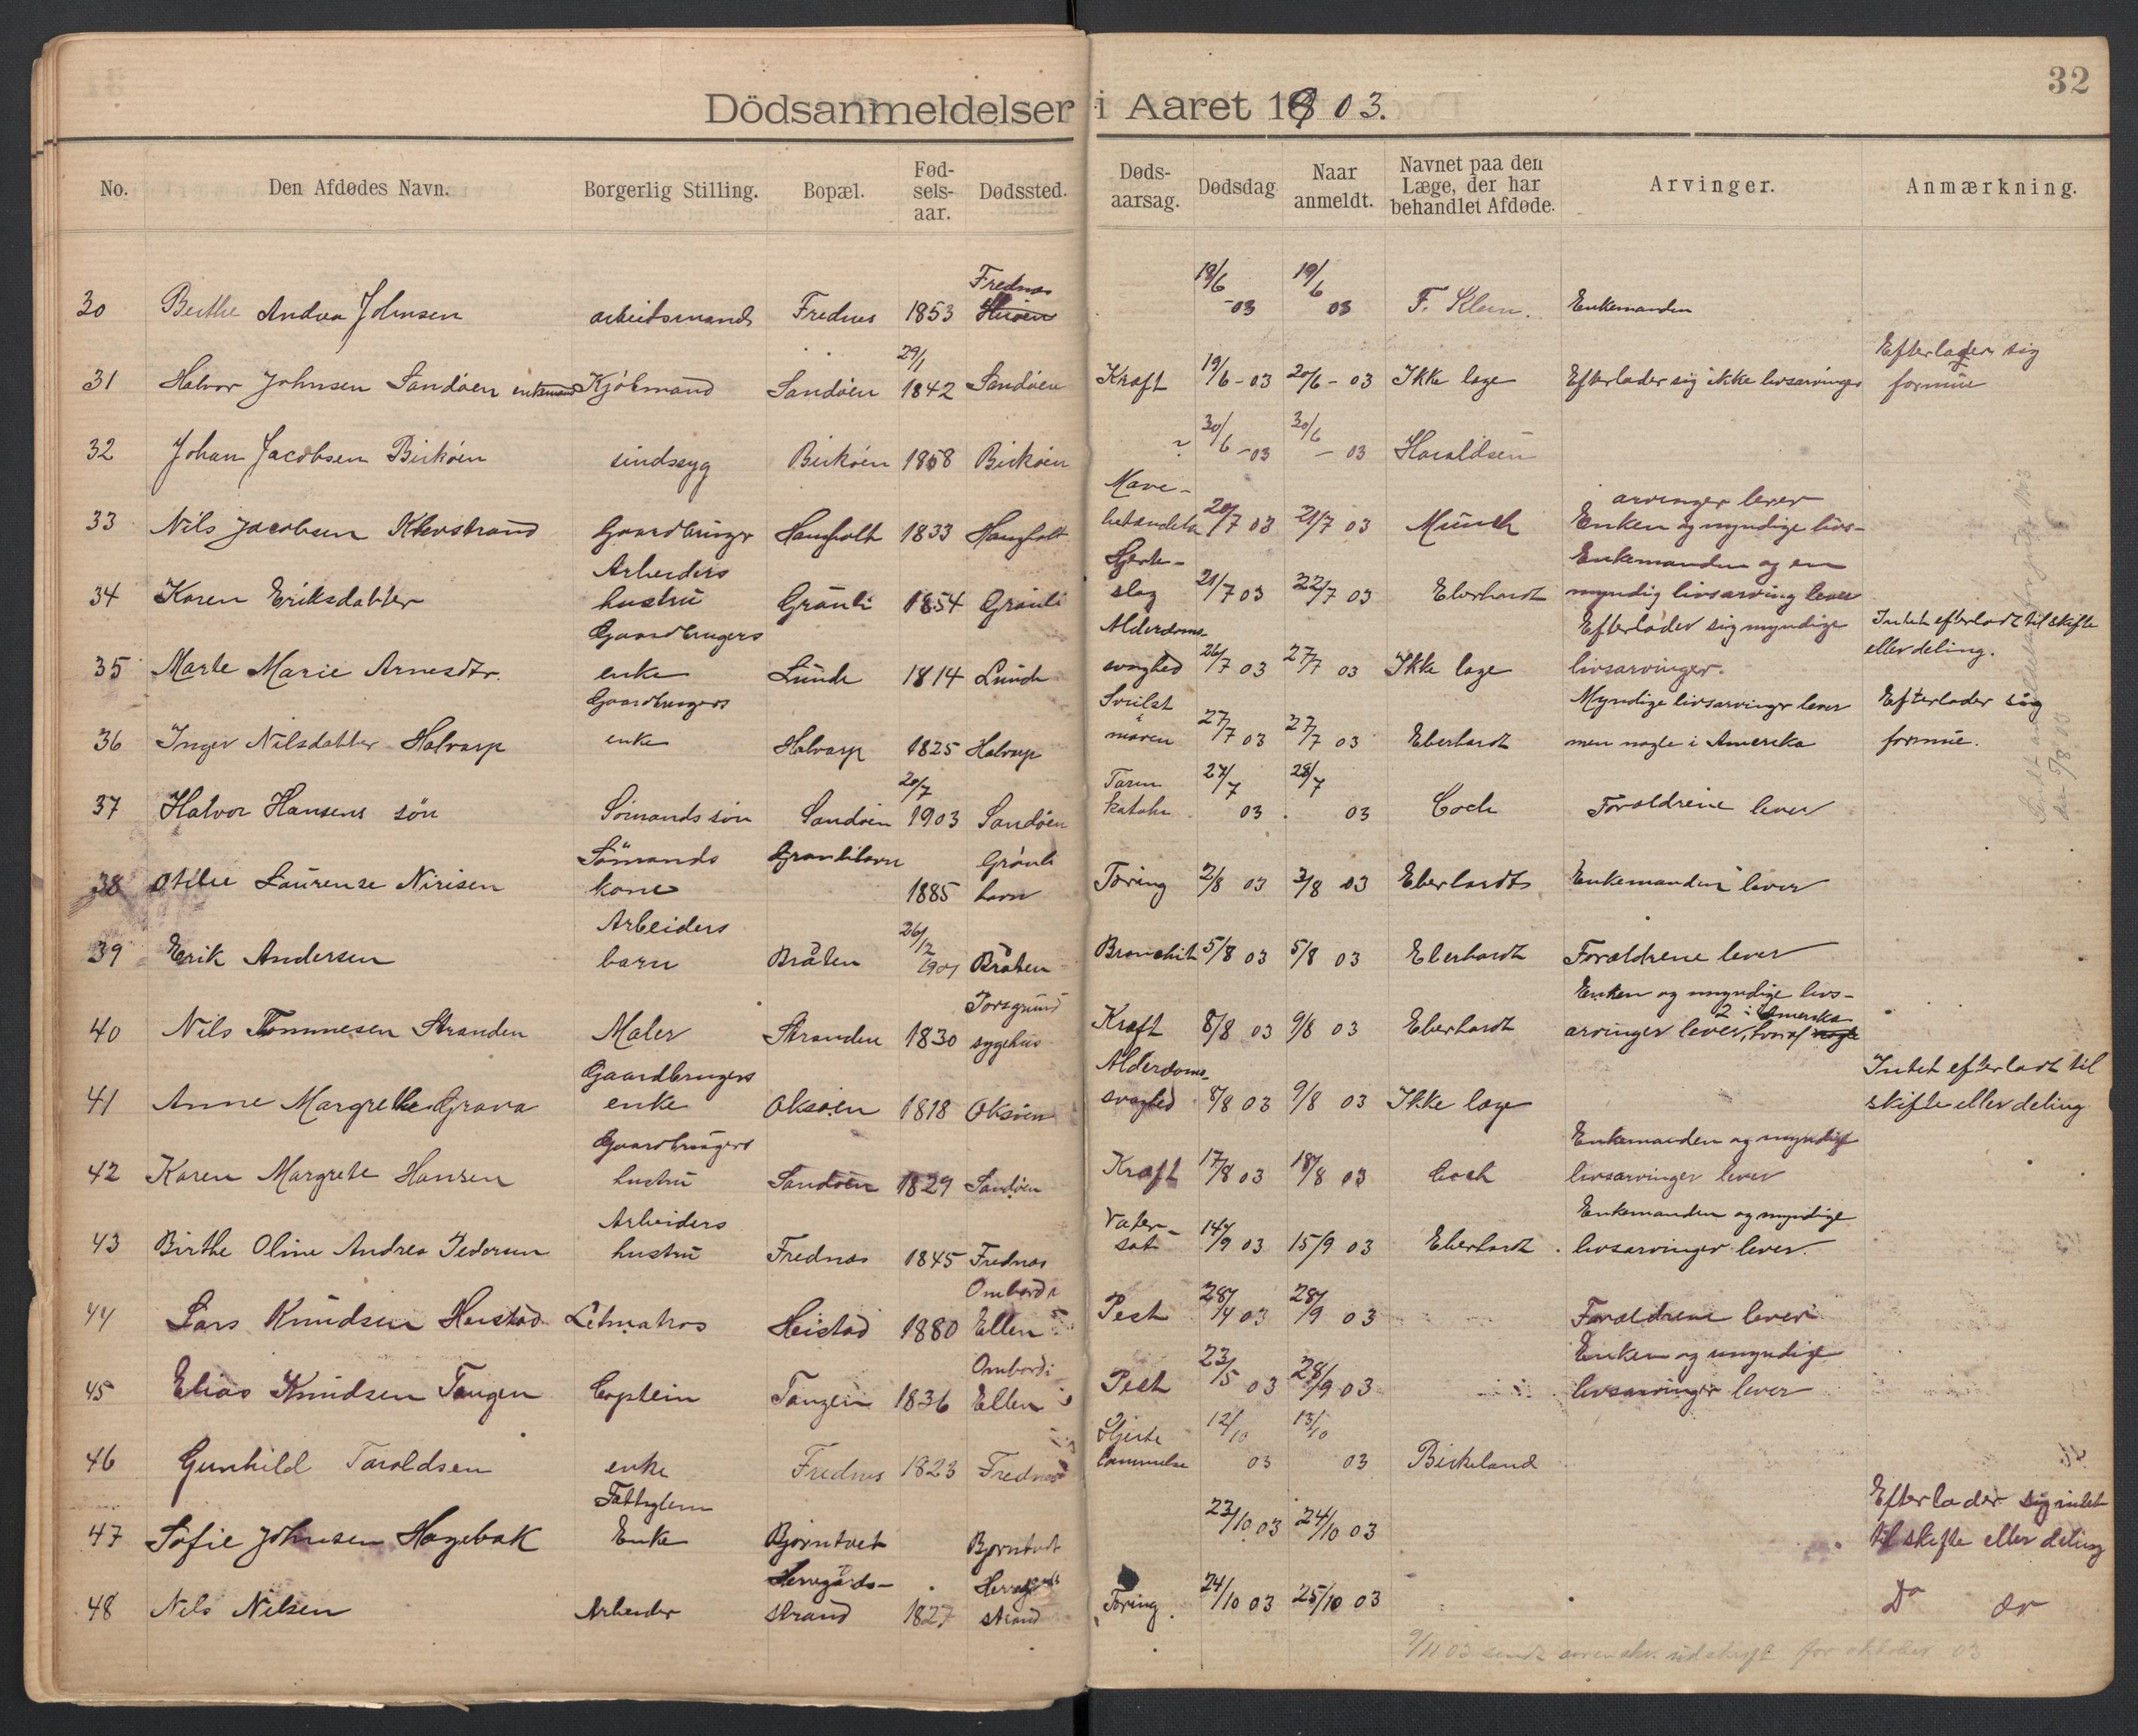 32
Dödsanmeldelser i Aaret 1903.
No. Den Afdødes Navn. Borgerlig Stilling. Bopæl. Fødselsaar. Dødssted. Dødsaarsag. Dødsdag Naar anmeldt. Navnet paa den Læge, der har behandlet Afdøde. Arvinger. Anmærkning.
30 Berthe Andrea Johnsen arbeidsmands Frednes 1853 Frednæs 18/6 -03 19/6 03 F. Klem. Enkemanden
31 Halvor Johnsen Sandøen enkemand Kjøbmand Sandöen 29/1 1842 Sandöen Kræft 19/6 - 03 20/6 - 03 Ikke læge Efterlader sig ikke livsarvinger Efterlader sig formue
32 Johan Jacobsen Birköen sindssyg Birköen 1858 Birköen ? 30/6 -03 30/6 - 03 Haraldsen
33 Nils Jacobsen Klevstrand Gaardbruger Hougholt 1833 Hougholt Mave- 20/7 03 21/7 03 Münch Enken og myndige livsarvinger lever
34 Karen Eriksdatter Arbeiders hustru Grönli 1854 Grönli Hjerteslag 21/7 03 22/7 03 Eberhardt Enkemanden og en myndig livsarving lever
35 Marte Marie Arnesdtr. Gaardbrugers enke Lunde 1814 Lunde Alderdomssvaghed 26/7 03 27/7 03 Ikke læge Efterlader sig myndige livsarvinger. Intet efterladt til skifte eller deling.
36 Inger Nilsdatter Halvarp Gaardbrugers enke Halvarp 1825 Halvarp Svulst i maven 27/7 03 27/7 03 Eberhardt Myndige livsarvinger lever men nogle i Amerika Efterlader sig formue.
37 Halvor Hansens sön Sömands sön Sandöen 20/7 1903 Sandöen Tarmkatahr 27/7 03 28/7 03 Coch Foreldrene lever
38 Otilie Laurense Nirisen Sömands kone Grønlihavn 1885 Grönlihavn Tæring 2/8 03 3/8 03 Eberhardt Enkemanden lever
39 Erik Andersen Arbeiders barn Bråten 26/12 1901 Bråten Bronchit 5/8 03 5/8 03 Eberhardt Foreldrene lever
40 Nils Tommesen Stranden Maler Stranden 1830 Porsgrund sygehus Kræft 8/8 03 9/8 03 Eberhardt Enken og myndige livsarvinger lever, hvoraf 2 i Amerika
41 Anne Margrethe Grava Gaardbrugers enke Oksøen 1818 Oksøen Alderdomssvaghed 8/8 03 9/8 03 Ikke læge Intet efterladt til skifte eller deling
42 Karen Margrete Hansen Gaardbrugers hustru Sandöen 1829 Sandöen Kræft 17/8 03 18/8 03 Coch Enkemanden og myndige livsarvinger lever
43 Birthe Oline Andrea Pedersen Arbeiders hustru Frednæs 1845 Frednæs Vatersot 14/9 03 15/9 03 Eberhardt Enkemanden og myndige livsarvinger lever.
44 Lars Knudsen Heistad Letmatros Heistad 1880 Ombord i Ellen Pest 28/4 03 28/9 03 Foreldrene lever
45 Elias Knudsen Tangen Captein Tangen 1836 Ombord i Ellen Pest 23/5 03 28/9 03 Enken og myndige livsarvinger lever
46 Gunhild Taraldsen enke Frednes 1823 Frednæs Hjertelammelse 12/10 03 13/10 03 Birkeland
47 Sofie Johnsen Hagebak Fattiglem Enke Bjørntvet Bjørntvet 23/10 03 24/10 03 Efterlader sig intet til skifte eller deling
48 Nils Nilsen Arbeider Herregårdsstrand 1827 Herregårdsstrand Tæring 24/10 03 25/10 03 Do do
9/11 03 sendt sorenskr. udskrift for oktober 03